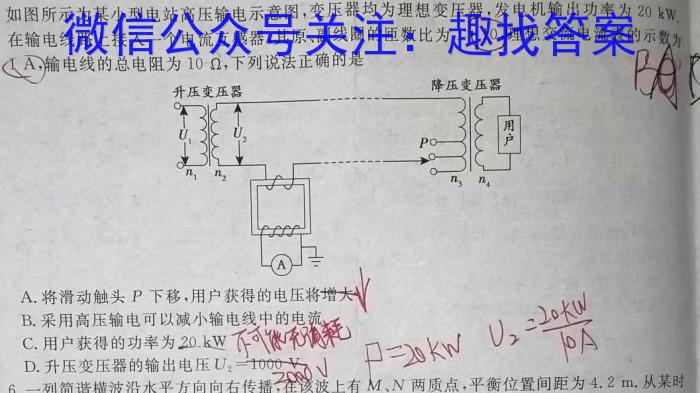 如图所示为某小型电站高压输电示意图,变压器均为理想变压器,发电机输出功率为20 kW.
在输电线 接入 个电流互感器,其原、副线圈的匝数比为 理想交流电流表的示数为
微信公众号关注：趣找答案
1 A,输电线的总电阻为10 Ω,下列说法正确的是
升压变压器
降压变压器
U₁
U₂
P
用户
n₁
n₂
n₃
n₄
A
A.将滑动触头 P 下移,用户获得的电压将增大
B.采用高压输电可以减小输电线中的电流
C.用户获得的功率为20 kW 不可能无消耗
P=20KW
U₂=20KW/10A
D.升压变压器的输出电压U₂=1000 V
2000V
6.一列简谐横波沿水平方向向右传播,在该波上有 M、N 两质点,平衡位置间距为4.2 m.从某时